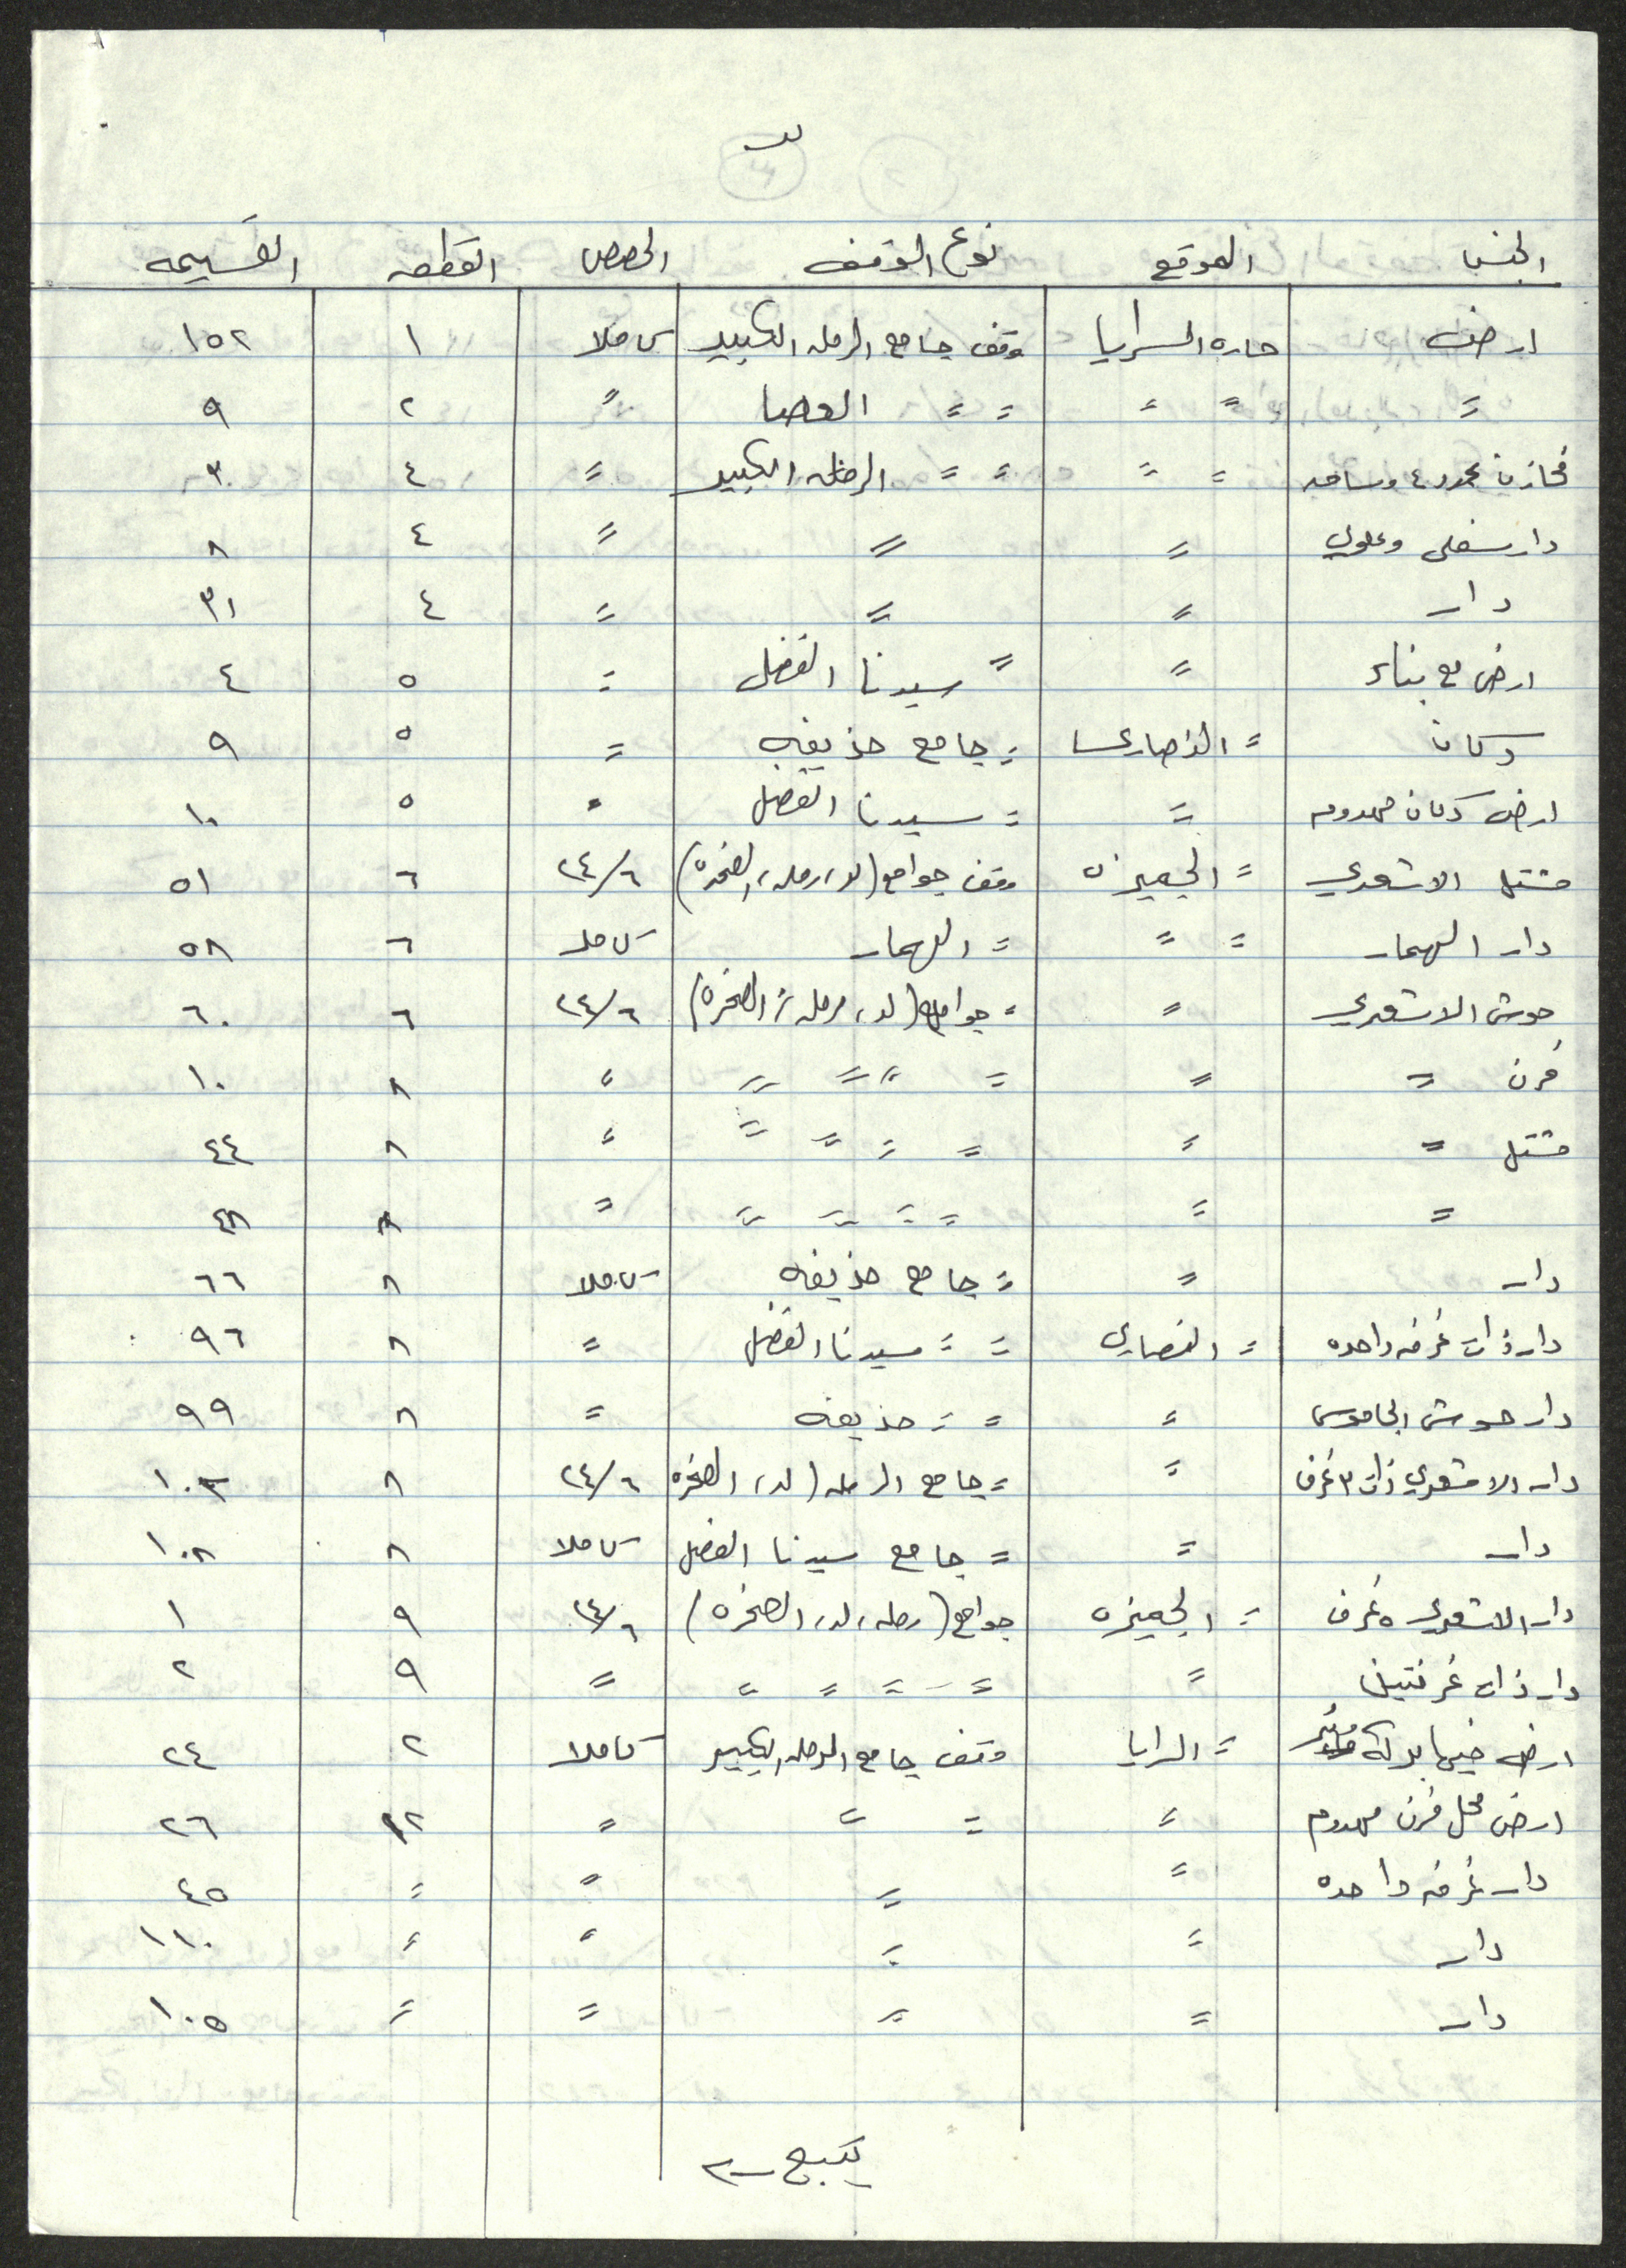 الجنس الموقع نوع الوقف الحصص القطعه القسيمه
ارض حاره السرايا وقف جامع الرمله الكبير كاملا ١ ١٥٢
= = = = = العصا = ٢ ٩
مخازن عدد ٤ وساحه = = = = الرمله الكبير = ٤ ٣
دار سفلي وعلوي = = = ٤ ٨
دار = = = ٤ ٣١
ارض مع بناء = = سيدنا الفضل = ٥ ٤
دكان = النصارى = جامع حذيفه = ٥ ٩
ارض دكان مهدوم = = سيدنا الفضل = ٥ ١٠
مشتمل الاشعري = الجميزه وقف جوامع (لد، رمله، الصخره) ٢٤/٦ ٦ ٥١
دار = = = كاملا ٦ ٥٨
حوش الاشعري = = جوامع (لد، رمله، الصخره) ٢٤/٦ ٦ ٦٠
فرن = = = = = = = ٨ ١٠
مشتمل = = = = = = = ٨ ٤٤
= = = = = = = ٨ ٤٨
دار = = جامع حذيفه كاملا ٨ ٦٦
دار ذات غرفه واحده = النصارى = = سيدنا الفضل = ٨ ٩٦
دار حوش الجاموس = = = حذيفه = ٨ ٩٩
دار الاشعري ذات ٣ غرف = = جامع الرمله (لد، الصخره ٢٤/٦ ٨ ١٠٣
دار = = جامع سيدنا الفضل كاملا ٨ ١٠٨
دار الاشعري ٥ غرف = الجميزه جوامع (رمله، لد، الصخره) ٢٤/٦ ٩ ١
دار ذات غرفتين = = = = = = ٩ ٢
ارض فيها بركه = السرايا وقف جامع الرمله الكبير كاملا ٢ ٢٤
ارض محل فرن مهدوم = = = = ١٢ ٢٦
دار غرفه واحده = = = = ٤٥
دار = = = = ١١٠
دار = = = = ١٠٥
يتبع